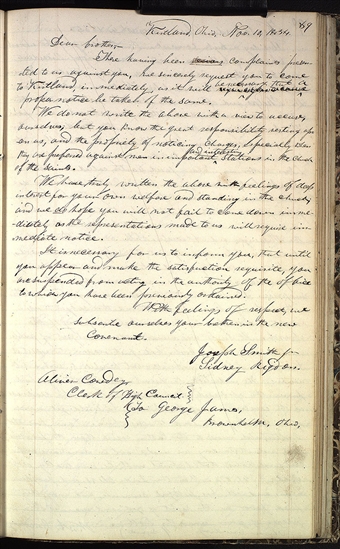 69
Kirtland, Ohio, Nov. 10, 1834.
Dear brother,
There having been complaints presen-
ted to us against you, we sincerely request you to come
to Kirtland, immediately, as it will be necessary that a
proper notice be taken of the same.
We do not write the above with a view to accuse,
ourselves, but you know the great responsibility resting upon
us, and the propriety of noticing charges, especially when
they are preferred against men in important and interesting stations in the church
of the Saints.
We have truly written the above with feelings of deep
interest for your own welfare and standing in the church,
and we do hope you will not fail to come down imme-
diately as the representations made to us will require im-
mediate notice.
It is necessary for us to inform you, that until
you appear and make the satisfaction requisite, you
are suspended from acting in the authority of the office
to which you have been previously ordained.
With feelings of respect, we
subscribe ourselves your brethren in the new
Covenant.
Joseph Smith jr
Sidney Rigdon.
Oliver Cowdery
Clerk of High Council }
To George James,
Brownhelm, Ohio.